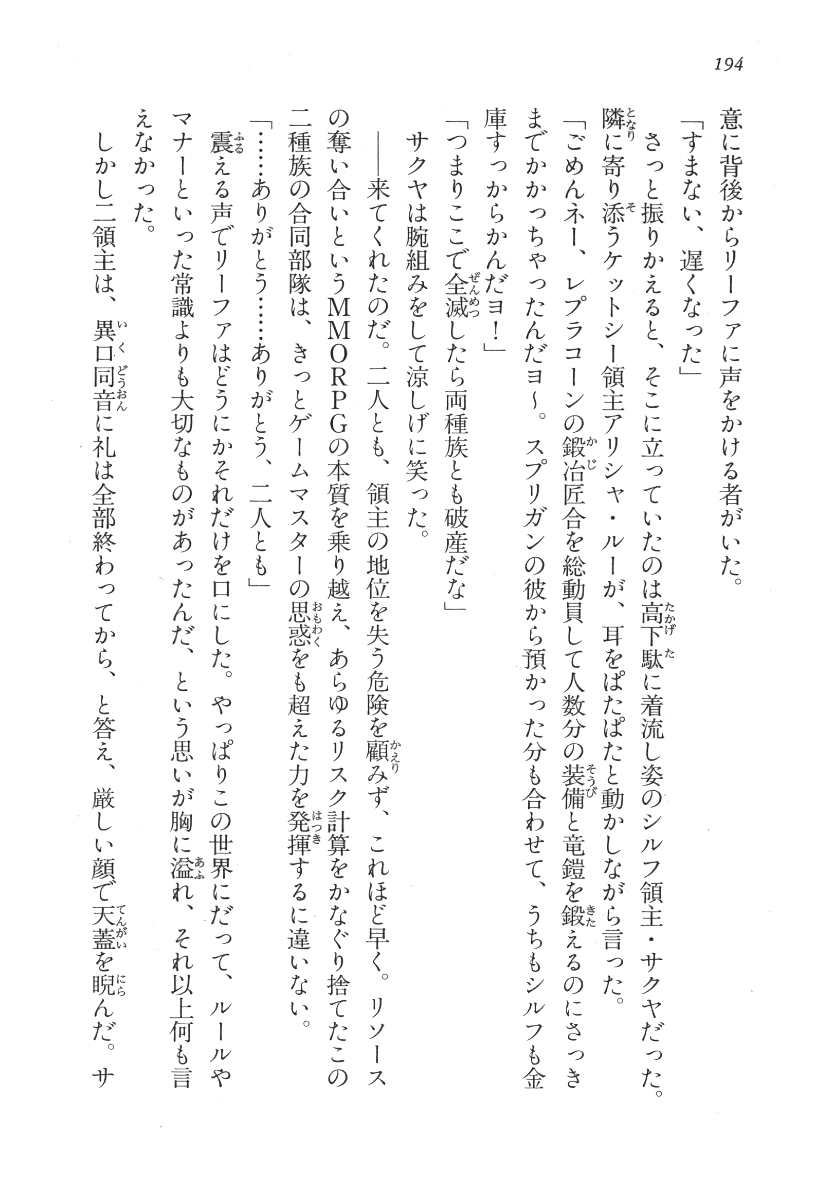 194
意に背後からリーファに声をかける者がいた。
「すまない、遅くなった」
さっと振りかえると、そこに立っていたのは高下駄に着流し姿のシルフ領主・サクヤだった。
隣に寄り添うケットシー領主アリシャ・ルーが、耳をぱたぱたと動かしながら言った。
「ごめんネー、レプラコーンの鍛冶匠合を総動員して人数分の装備と竜鎧を鍛えるのにさっき
までかかっちゃったんだヨ～。スプリガンの彼から預かった分も合わせて、うちもシルフも金
庫すっからかんだヨ！」
「つまりここで全滅したら両種族とも破産だな」
サクヤは腕組みをして涼しげに笑った。
――来てくれたのだ。二人とも、領主の地位を失う危険を顧みず、これほど早く。リソース
の奪い合いというＭＭＯＲＰＧの本質を乗り越え、あらゆるリスク計算をかなぐり捨てたこの
二種族の合同部隊は、きっとゲームマスターの思惑をも超えた力を発揮するに違いない。
「……ありがとう……ありがとう、二人とも」
震える声でリーファはどうにかそれだけを口にした。やっぱりこの世界にだって、ルールや
マナーといった常識よりも大切なものがあったんだ、という思いが胸に溢れ、それ以上何も言
えなかった。
しかし二領主は、異口同音に礼は全部終わってから、と答え、厳しい顔で天蓋を睨んだ。サ